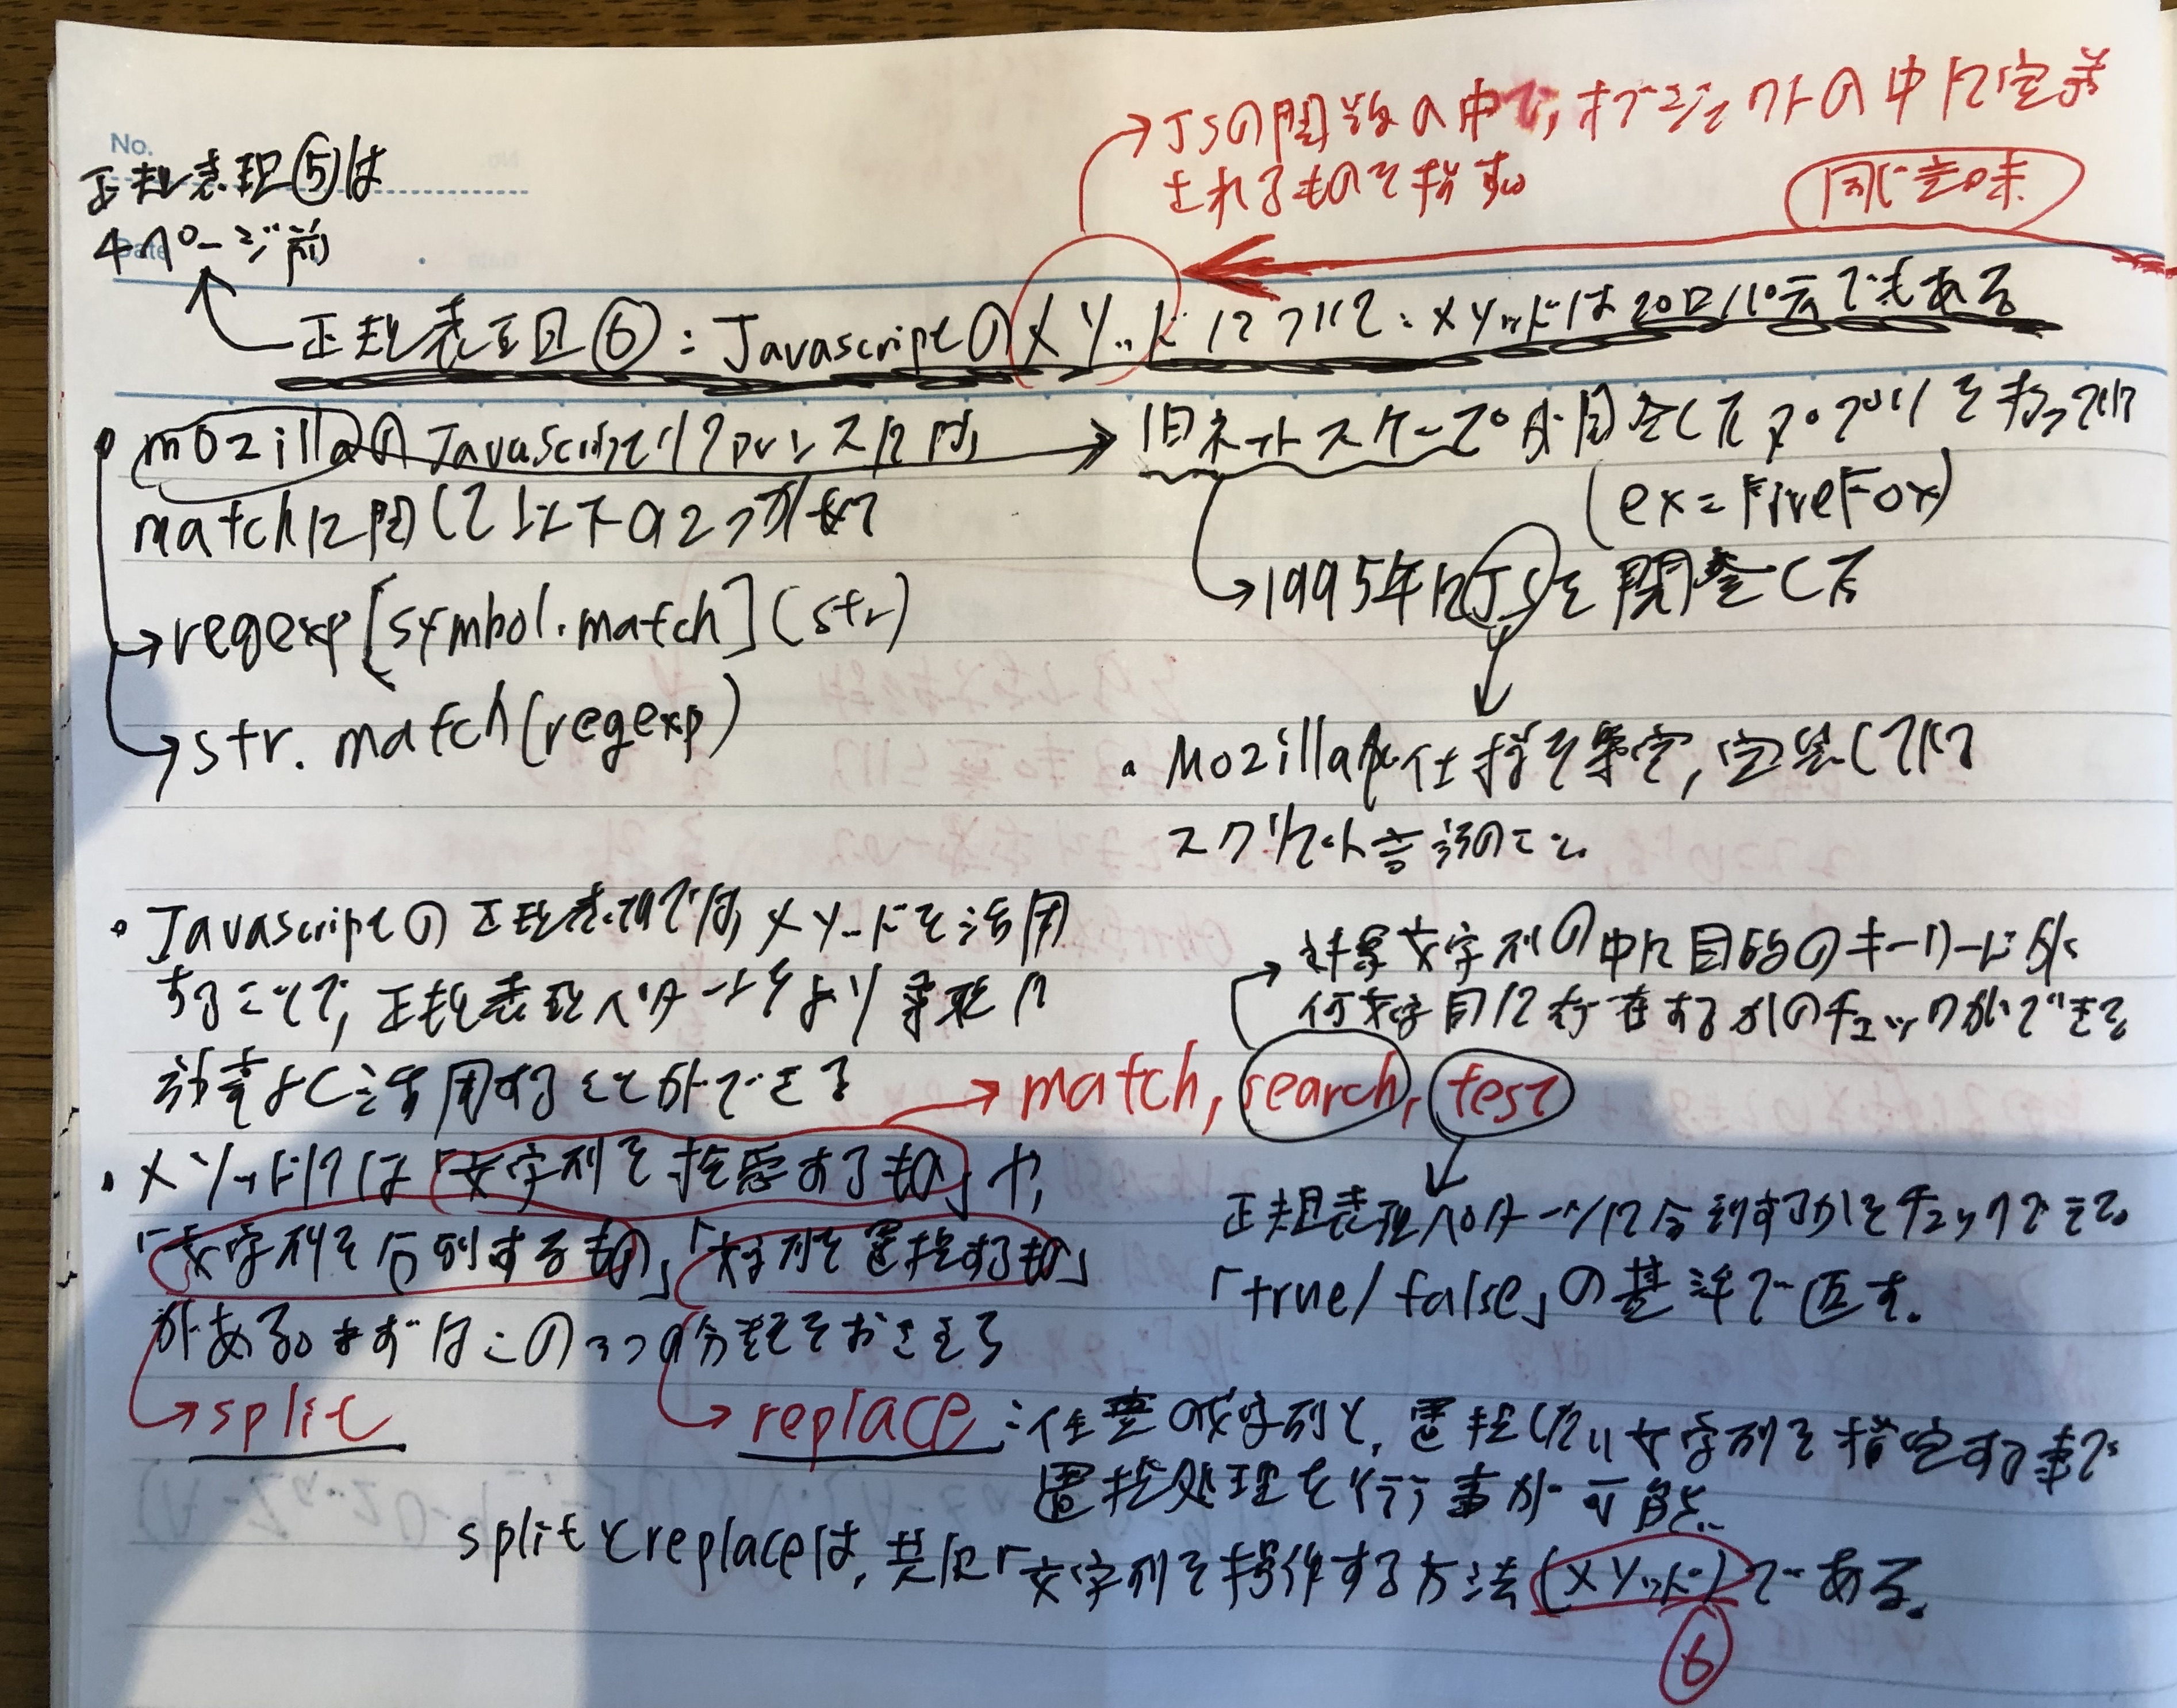 No.
Date
正規表現⑤は
4ページ前
→JSの関数の中で,オブジェクトの中に定義
されるものを指す。
同じ意味
正規表現⑥:Javascriptのメソッドについて:メソッドは
でもある
• mozillaのJavascriptリファレンスには、
matchに関して以下の2つがある
→regexp[symbol.match](str)
→str.match(regexp)
→旧ネットスケープが開発したアプリを
(ex=FireFox)
→1995年にJSを開発した
• Mozillaが仕様を策定,定義している
スクリプト言語のこと。
• Javascriptの正規表現では、メソッドを活用
することで,正規表現パターンをより柔軟に
効率よく活用することができる
→match, search, test
→対象文字列の中に目的のキーワードが
何文字目に存在するかのチェックができる
• メソッドには「文字列を検索するもの」や,
「文字列を分割するもの」「文字列を置換するもの」
がある。まずはこの3つの分類をおさえる
正規表現パターンに合致するかをチェックできる。
「true/false」の基準で返す.
→split
→replace:任意の文字列と,置換したい文字列を指定する事で
置換処理を行う事が可能.
splitとreplaceは,共に「文字列を操作する方法(メソッド)である.
⑥